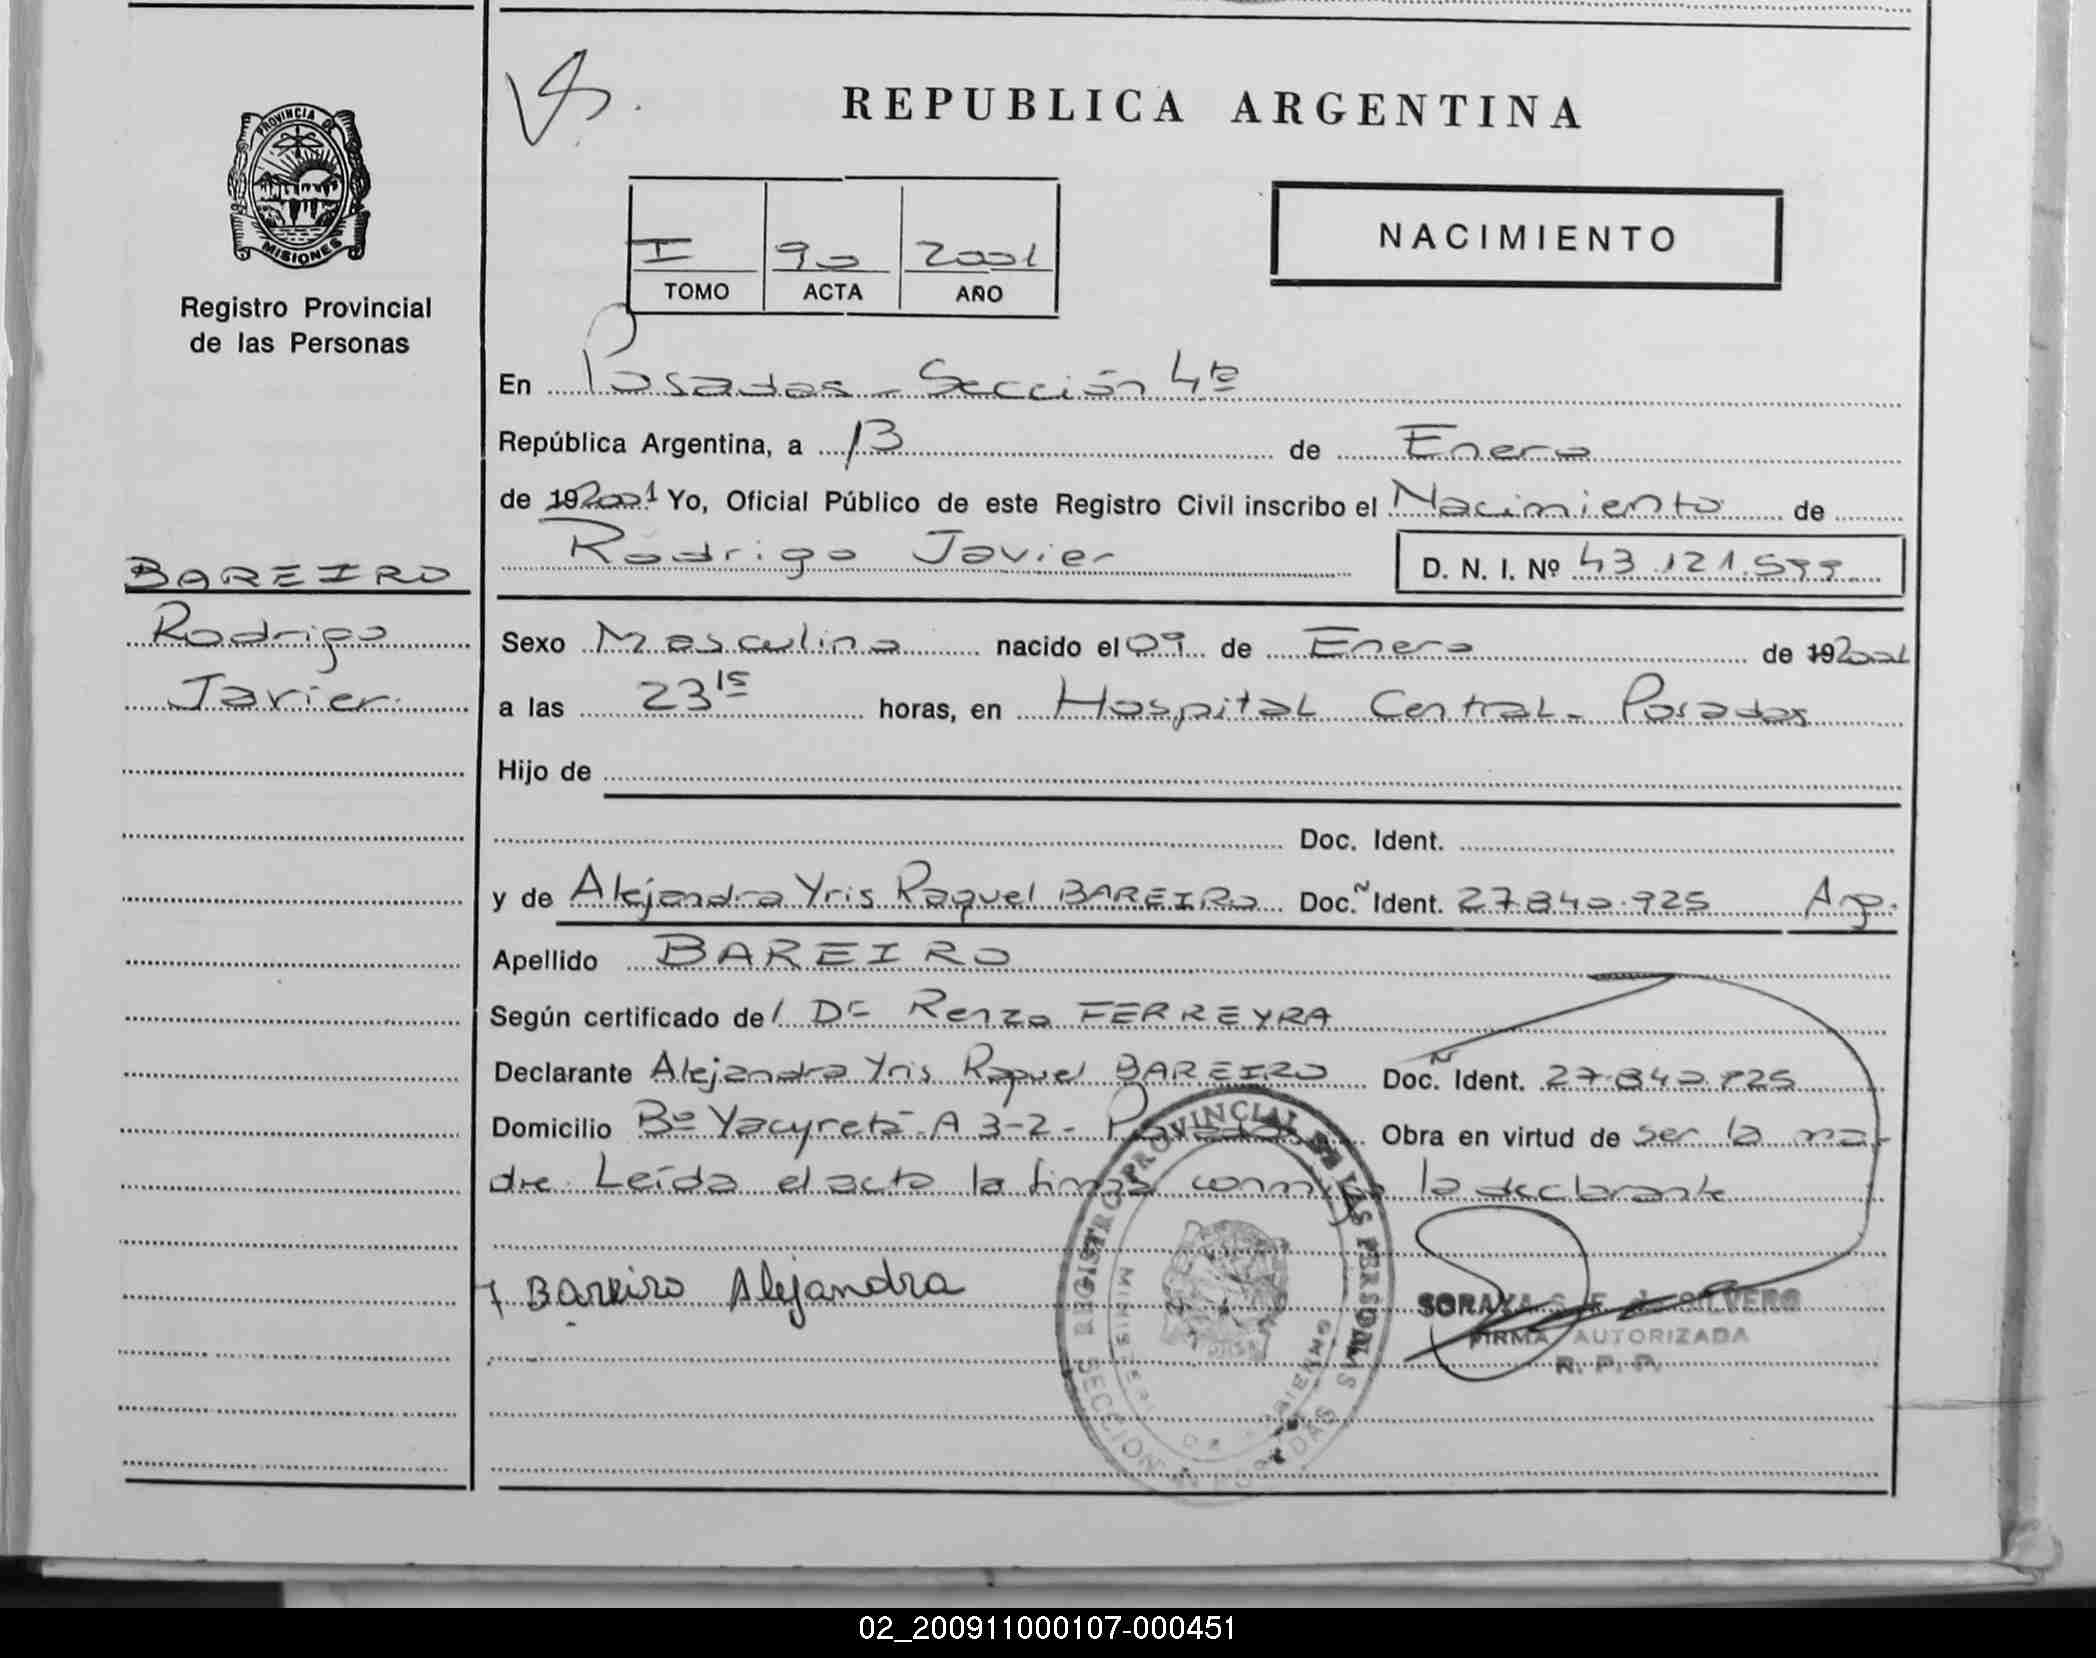 REPUBLICA ARGENTINA
PROVINCIA DE
MISIONES
Registro Provincial
de las Personas
I 90 2001
TOMO ACTA AÑO
NACIMIENTO
En Posadas - Sección 4ta
República Argentina, a 13 de Enero
de 192001 Yo, Oficial Público de este Registro Civil inscribo el Nacimiento de
Rodrigo Javier D. N. I. Nº 43.121.599
BAREIRO
Rodrigo
Javier.
Sexo Masculino nacido el 09 de Enero de 192001
a las 23 15 horas, en Hospital Central - Posadas
Hijo de
Doc. Ident.
y de Alejandra Yris Raquel BAREIRO Doc. Ident. 27.840.925 Arg.
Apellido BAREIRO
Según certificado del Dr Renzo FERREYRA
Declarante Alejandra Yris Raquel BAREIRO Doc. Ident. 27.840.925
Domicilio Bº Yacyretá - A 3-2 - Posadas Obra en virtud de ser la ma-
dre. Leída el acta la firma conmigo la declarante
REGISTRO PROVINCIAL DE LAS PERSONAS
Bareiro Alejandra
SORAYA
FIRMA AUTORIZADA
R. P. P.
02_200911000107-000451